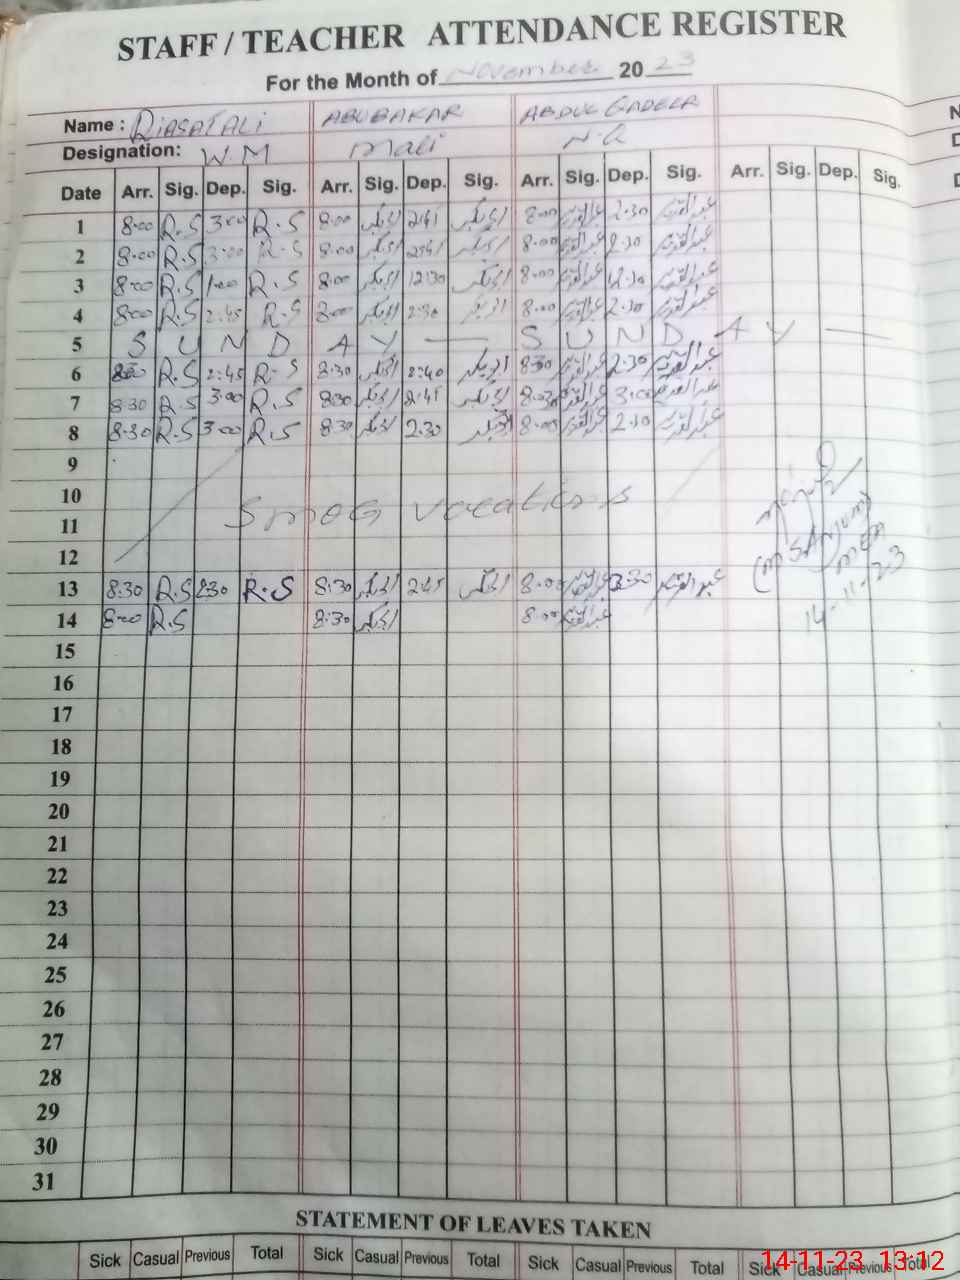 STAFF / TEACHER ATTENDANCE REGISTER
For the Month of November 20 23
Name : RIASAT ALI ABUBAKAR ABDUL QADEER
Designation: W.M Mali N.Q
Date Arr. Sig. Dep. Sig. Arr. Sig. Dep. Sig. Arr. Sig. Dep. Sig. Arr. Sig. Dep. Sig.
1 8:00 R.S 3:00 R.S 8:00 ابوبکر 2:41 ابوبکر 8:00 عبدالقدیر 2:30 عبدالقدیر
2 8:00 R.S 3:00 R.S 8:00 ابوبکر 2:41 ابوبکر 8:00 عبدالقدیر 2:30 عبدالقدیر
3 8:00 R.S 1:00 R.S 8:00 ابوبکر 12:30 ابوبکر 8:00 عبدالقدیر 12:30 عبدالقدیر
4 8:00 R.S 2:45 R.S 8:00 ابوبکر 2:30 ابوبکر 8:00 عبدالقدیر 2:30 عبدالقدیر
5 S U N D A Y — S U N D A Y —
6 8:30 R.S 2:45 R.S 8:30 ابوبکر 2:40 ابوبکر 8:30 عبدالقدیر 2:30 عبدالقدیر
7 8:30 R.S 3:00 R.S 8:30 ابوبکر 2:41 ابوبکر 8:30 عبدالقدیر 3:00 عبدالقدیر
8 8:30 R.S 3:00 R.S 8:30 ابوبکر 2:30 ابوبکر 8:00 عبدالقدیر 2:30 عبدالقدیر
9
10 Smog vocations
11
12
13 8:30 R.S 2:30 R.S 8:30 ابوبکر 2:45 ابوبکر 8:00 عبدالقدیر 3:30 عبدالقدیر
14 8:00 R.S 8:30 ابوبکر 8:00 عبدالقدیر
MEA
14-11-23
15
16
17
18
19
20
21
22
23
24
25
26
27
28
29
30
31
STATEMENT OF LEAVES TAKEN
Sick Casual Previous Total Sick Casual Previous Total Sick Casual Previous Total Sick Casual Previous Total
14-11-23 13:12